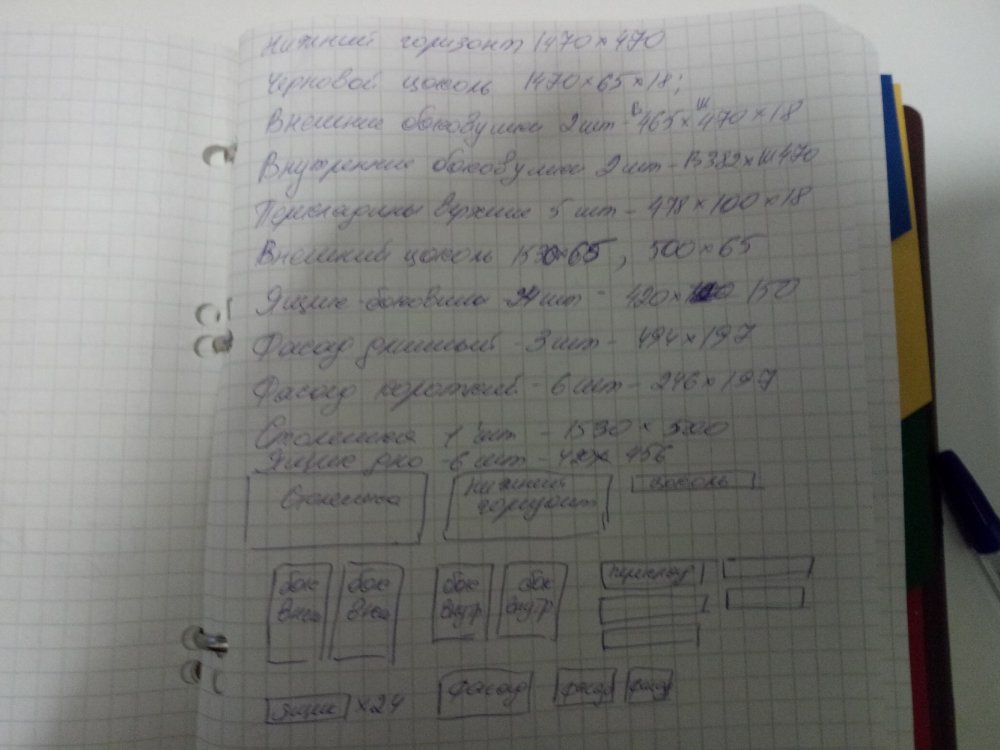 Нижний горизонт 1470×470
Черновой цоколь 1470×65×18;
Внешние боковушки 2 шт - В465×Ш470×18
Внутренние боковушки 2 шт - В382×Ш470
Перекладины верхние 5 шт - 478×100×18
Внешний цоколь 1530×65, 500×65
Ящик боковины 24 шт - 420× 150
Фасад длинный - 3 шт - 494×197
Фасад короткий - 6 шт - 246×197
Столешка 1 шт - 1530×500
Ящик дно - 6 шт - 456
Столешка Нижний горизонт Цоколь
бок внеш бок внеш бок внутр бок внутр переклад
Ящик ×24 Фасад Фасад Фасад